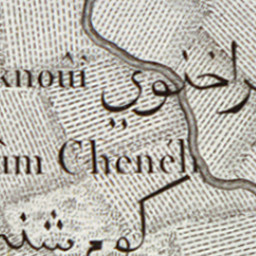 knoûi
راخنوي
îm Chenéh
كوم شنه